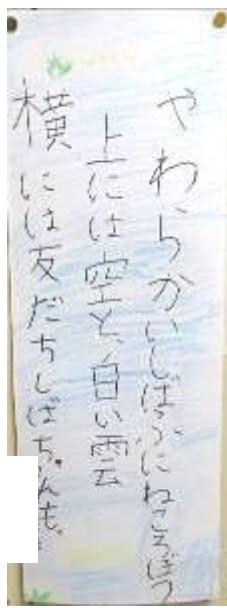 やわらかいしばふにねころぼう
上には空と、白い雲
横には友だちしばち。んも。